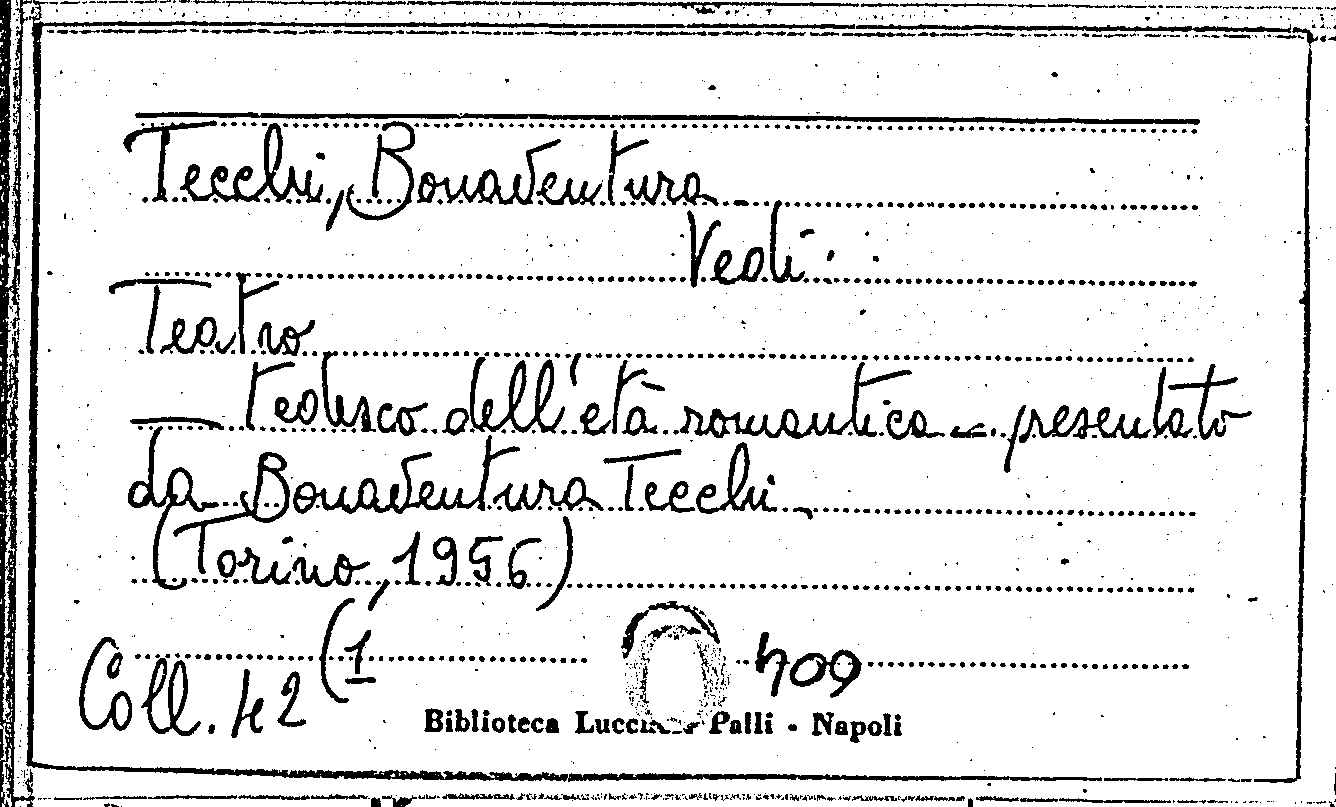 Tecchi, Bonaventura
Vedi:
Teatro
— tedesco dell'età romantica - presentato
da Bonaventura Tecchi.
(Torino, 1956)
Coll. 42 (1
409
Biblioteca Lucchesi Palli - Napoli